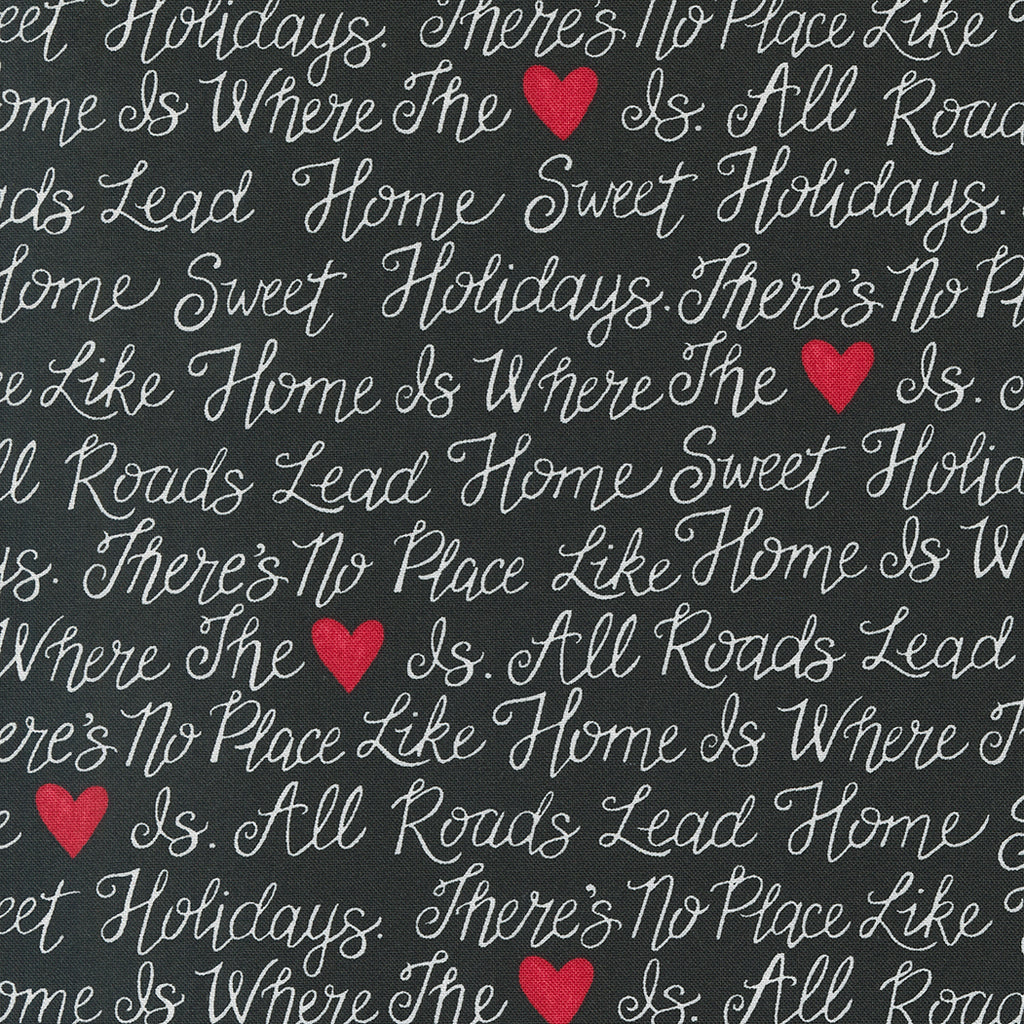 eet Holidays. There's No Place Like
ome Is Where The Is. All Road
ads Lead Home Sweet Holidays.
Home Sweet Holidays. There's No Pl
e Like Home Is Where The Is.
ll Roads Lead Home Sweet Holida
ys. There's No Place Like Home Is W
Where The Is. All Roads Lead
ere's No Place Like Home Is Where T
e Is. All Roads Lead Home S
eet Holidays. There's No Place Like
ome Is Where The Is. All Road